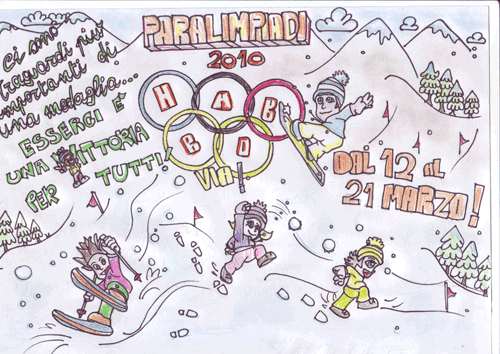 Ci sono
traguardi più
importanti di
una medaglia...
ESSERCI È
UNA VITTORIA
PER TUTTI!
PARALIMPIADI
2010
H A B
B O
VIA!
DAL 12 al
21 MARZO!